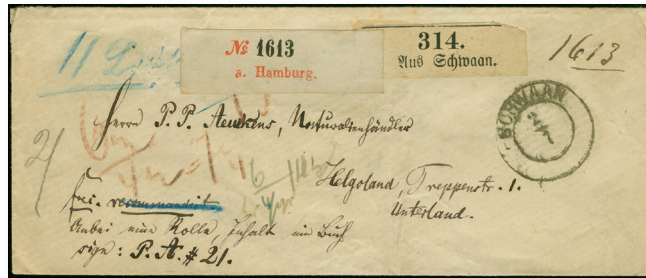 № 1613
a. Hamburg.
314.
Aus Schwaan.
1613
SCHWAAN
2/7
Herrn P. P. Aeukens, Naturalienhändler
Helgoland, Treppenstr. 1.
Unterland.
frei. recommandirt.
Anbei eine Rolle, Inhalt ein Buch
sign: P. A. # 21.